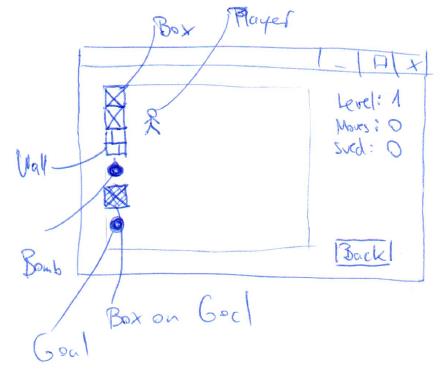 Box
Player
_ □ X
Level: 1
Moves: 0
Wall
Bomb
Back
Box on Goal
Goal